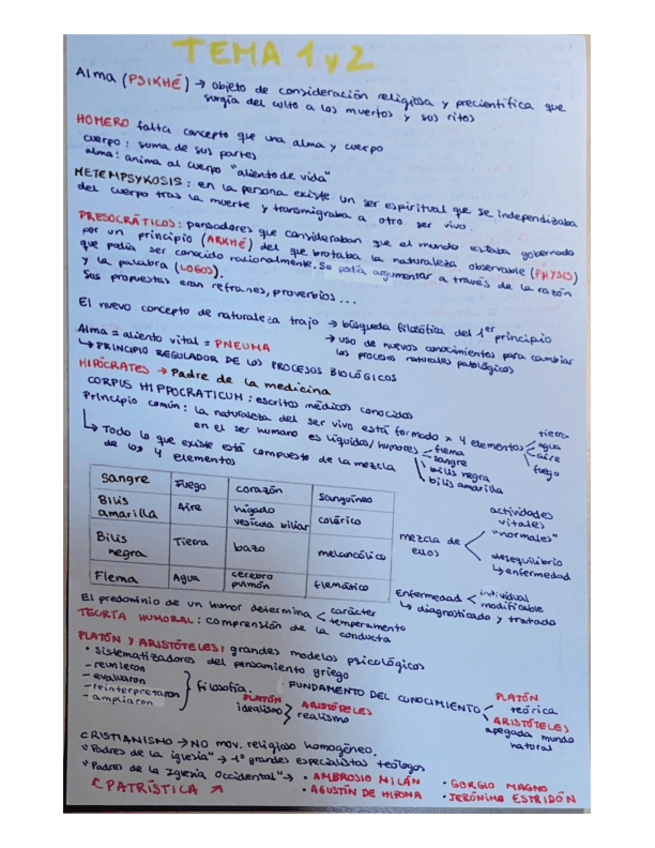 TEMA 1 y 2
Alma (PSIKHÉ) → objeto de consideración religiosa y precientífica que
surgía del culto a los muertos y sus ritos
HOMERO falta concepto que una alma y cuerpo
cuerpo: suma de sus partes
alma: anima al cuerpo "aliento de vida"
METEMPSYKOSIS: en la persona existe un ser espiritual que se independizaba
del cuerpo tras la muerte y transmigraba a otro ser vivo.
PRESOCRÁTICOS: pensadores que consideraban que el mundo estaba gobernado
por un principio (ARKHÉ) del que brotaba la naturaleza observable (PHYSIS)
que podía ser conocido racionalmente. Se podía argumentar a través de la razón
y la palabra (LOGOS).
Sus propuestas eran refranes, proverbios...
El nuevo concepto de naturaleza trajo → búsqueda filosófica del 1er principio
→ uso de nuevos conocimientos para cambiar
los procesos naturales patológicos
Alma = aliento vital = PNEUMA
↳ PRINCIPIO REGULADOR DE LOS PROCESOS BIOLÓGICOS
HIPÓCRATES → Padre de la medicina
CORPUS HIPPOCRATICUM: escritos médicos conocidos
Principio común: la naturaleza del ser vivo está formado x 4 elementos
tierra
agua
aire
fuego
en el ser humano es líquidos/humores
flema
sangre
bilis negra
bilis amarilla
↳ Todo lo que existe está compuesto de la mezcla
de los 4 elementos
Sangre Fuego corazón Sanguíneo
Bilis amarilla Aire hígado vesícula biliar colérico
Bilis negra Tierra bazo melancólico
Flema Agua cerebro pulmón flemático
mezcla de ellos
actividades vitales "normales"
desequilibrio
↳ enfermedad
Enfermedad
individual
modificable
↳ diagnosticado y tratado
El predominio de un humor determina
carácter
temperamento
TEORÍA HUMORAL: comprensión de la conducta
PLATÓN Y ARISTÓTELES: grandes modelos psicológicos
• sistematizadores del pensamiento griego
- reunieron
- evaluaron
- reinterpretaron
- ampliaron
filosofía.
PLATÓN
idealismo
ARISTÓTELES
realismo
· FUNDAMENTO DEL CONOCIMIENTO
PLATÓN
teórica
ARISTÓTELES
apegada mundo
natural
CRISTIANISMO → NO mov. religioso homogéneo.
"Padres de la iglesia" → 1º grandes especialistas teólogos
"Padres de la Iglesia Occidental" →
• AMBROSIO MILÁN
• AGUSTÍN DE HIPONA
• GORGIO MAGNO
• JERÓNIMO ESTRIDÓN
PATRÍSTICA